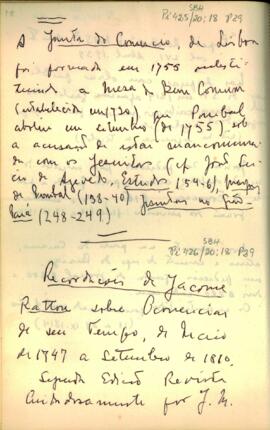 SBH
Pi 425/20;18 P29
A Junta do Comercio, de Lisboa
foi formada em 1755 substi-
tuindo a Mesa do Bem Comum
(estabelecida em 1720), que Pombal
aboliu em setembro (de 1755) sob
a acusação de estar mancomuna-
da com os Jesuitas (cf. João Lu-
cio de Azevedo, Estudos 154-6),
Pombal (138-40) Jesuitas no Grão
Pará (248-249)
SBH
Pi 426/20;18 P29
Recordações de Jacome
Ratton sobre Ocorrencias
de seu Tempo, de Maio
de 1747 a Setembro de 1810.
Segunda Edição Revista
Cuidadosamente por J. M.